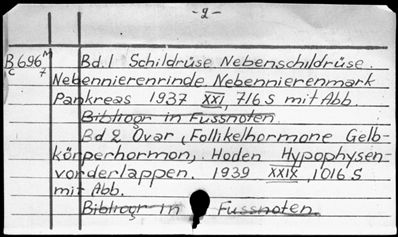 -2-
B 696 M Bd. 1 Schildrüse Nebenschildrüse.
c 7 Nebennierenrinde Nebennierenmark
Pankreas 1937 XXI, 716 S mit Abb.
Bibliogr in Fussnoten.
Bd 2 Ovar, Follikelhormone Gelb-
körperhormon, Hoden Hypophysen-
vorderlappen. 1939 XXIX, 1016 S
mit Abb.
Bibliogr in Fussnoten.